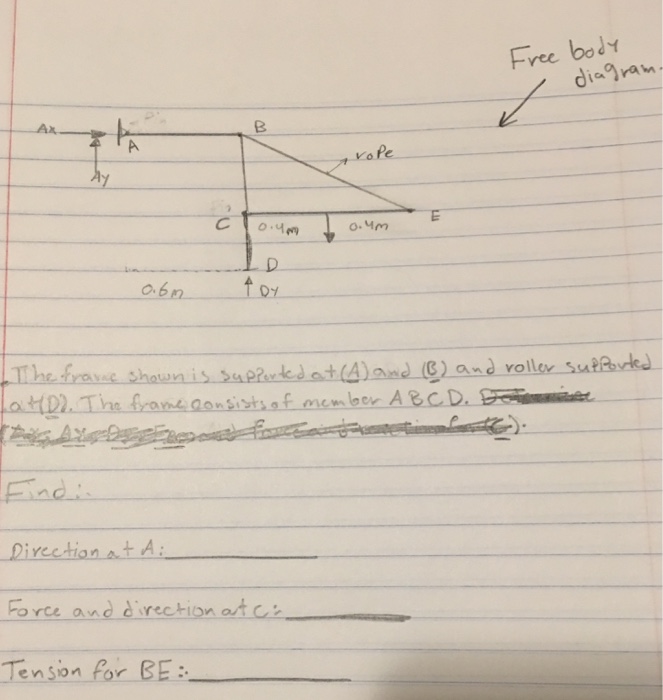 Free body
diagram.
Ax
A
B
rope
Ay
C
0.4m
0.4m
E
D
0.6m
Dy
The frame shown is supported at (A) and (B) and roller supported
at (D). The frame consists of member ABCD.
Find:
Direction at A:
Force and direction at C:
Tension for BE: